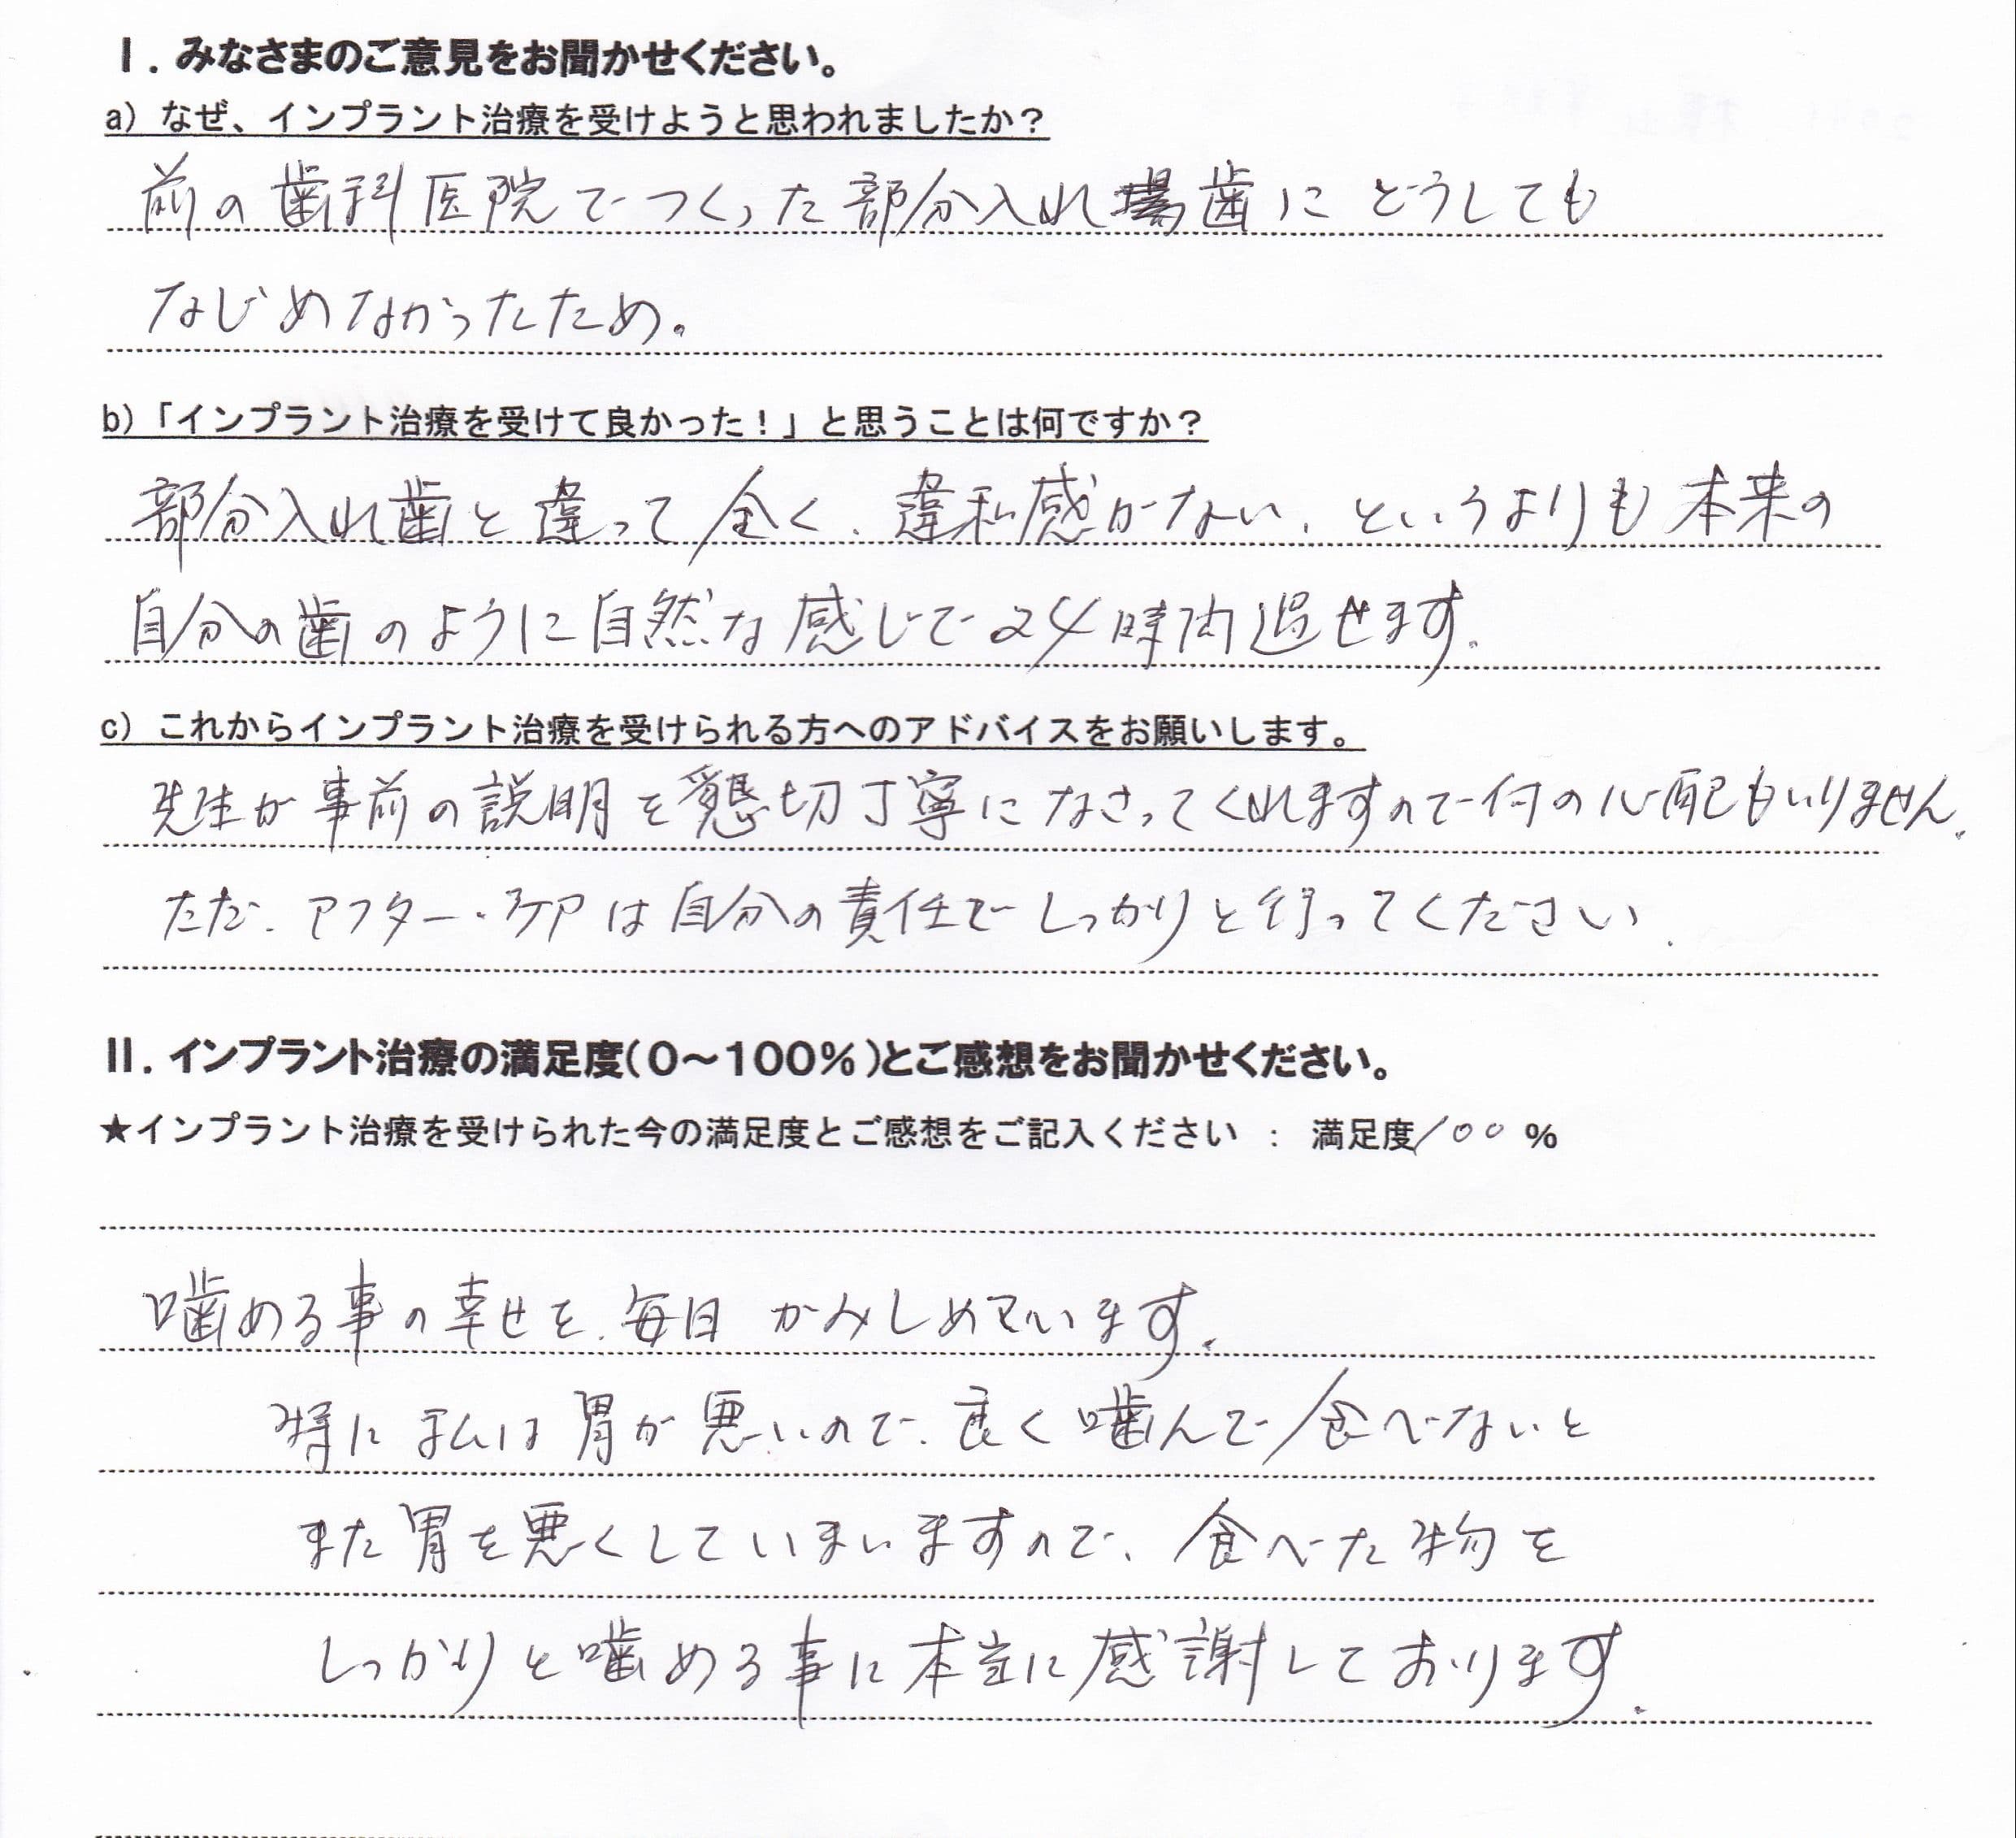 Ⅰ. みなさまのご意見をお聞かせください。
a) なぜ、インプラント治療を受けようと思われましたか？
前の歯科医院でつくった部分入れ歯にどうしても
なじめなかったため。
b)「インプラント治療を受けて良かった！」と思うことは何ですか？
部分入れ歯と違って全く、違和感がない、というよりも本来の
自分の歯のように自然な感じで24時間過せます。
c) これからインプラント治療を受けられる方へのアドバイスをお願いします。
先生が事前の説明を懇切丁寧になさってくれますので何の心配もいりません。
ただ、アフター・ケアは自分の責任でしっかりと行ってください。
Ⅱ. インプラント治療の満足度(0～100%)とご感想をお聞かせください。
★インプラント治療を受けられた今の満足度とご感想をご記入ください ： 満足度100 %
噛める事の幸せを、毎日かみしめています。
特に私は胃が悪いので、良く噛んで食べないと
また胃を悪くしていまいますので、食べた物を
しっかりと噛める事に本当に感謝しております。